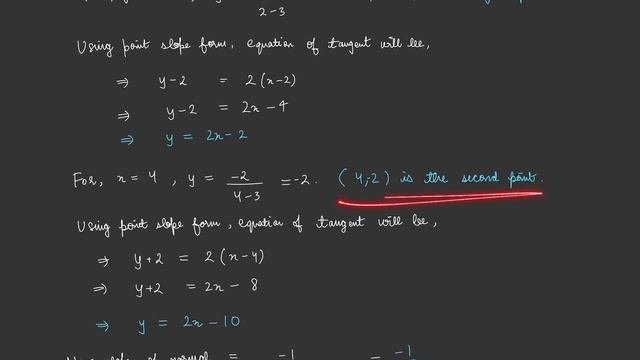 2-3
Using point slope form, equation of tangent will be,
⇒ y-2 = 2(x-2)
⇒ y-2 = 2x-4
⇒ y = 2x-2
For, x=4, y = -2/(4-3) = -2. (4,-2) is the second point.
Using point slope form, equation of tangent will be,
⇒ y+2 = 2(x-4)
⇒ y+2 = 2x-8
⇒ y = 2x-10
slope of normal = -1 = -1